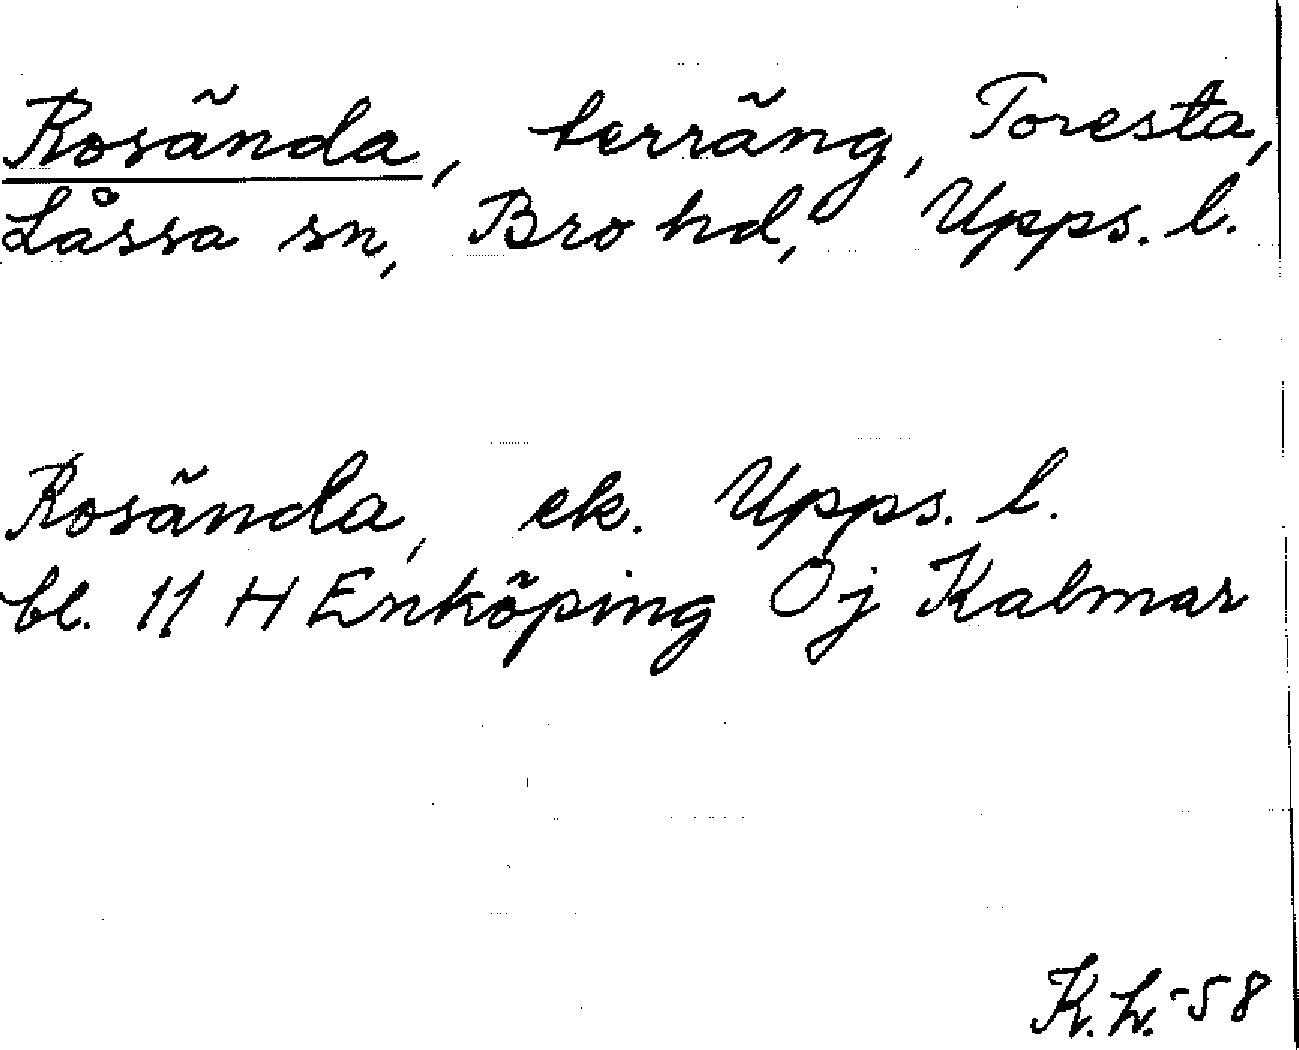 Rosända, terräng, Toresta,
Låssa sn, Bro hd, Upps. l.
Rosända, ek. Upps. l.
bl. 11 H Enköping Öj Kalmar
K.L.-58